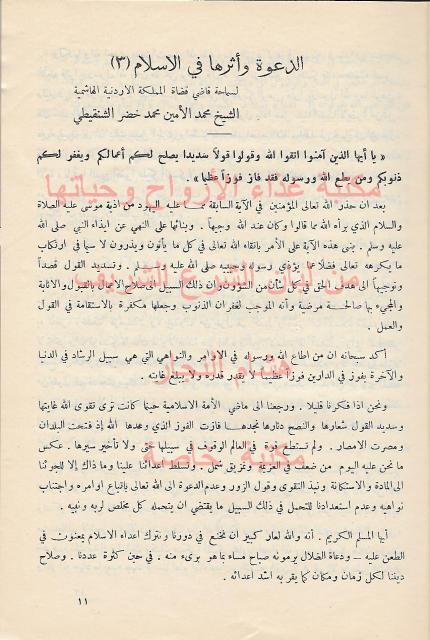 الدعوة وأثرها في الاسلام (٣)
لسماحة قاضي قضاة المملكة الاردنية الهاشمية
الشيخ محمد الأمين محمد خضر الشنقيطي
« يا أيها الذين آمنوا اتقوا الله وقولوا قولاً سديدا يصلح لكم أعمالكم ويغفر لكم
ذنوبكم ومن يطع الله ورسوله فقد فاز فوزاً عظيما » .
مكتبة غذاء الأرواح وحياتها
بعد ان حذر الله تعالى المؤمنين في الآية السابقة مما عليه اليهود من اذية موسى عليه الصلاة
والسلام الذي برأه الله مما قالوا وكان عند الله وجيهاً . وبنائها على النهي عن ايذاء النبي صلى الله
عليه وسلم . بنى هذه الآية على الأمر باتقاء الله تعالى في كل ما يأتون ويذرون لا سيما في ارتكاب
ما يكرهه تعالى فضلاً عما يؤذي رسوله وحبيبه صلى الله عليه وسلم . وتسديد القول قصداً
وتوجيهاً الى هدف الحق في كل شأن من الشؤون وان ذلك السبيل الى صلاح الاعمال بالقبول والاثابة
والمجيء بها صالحة مرضية وأنه الموجب لغفران الذنوب وجعلها مكفرة بالاستقامة في القول
والعمل .
أكد سبحانه ان من اطاع الله ورسوله في الاوامر والنواهي التي هي سبيل الرشاد في الدنيا
والآخرة يفوز في الدارين فوزاً عظيما لا يقدر قدره ولا يبلغ غايته .
هشام النجار
ونحن اذا فكرنا قليلا . ورجعنا الى ماضي الأمة الاسلامية حينما كانت ترى تقوى الله غايتها
وسديد القول شعارها والنصح دثارها نجدها فازت الفوز الذي وعدها الله إذ فتحت البلدان
ومصرت الامصار . ولم تستطع قوة في العالم الوقوف في سبيلها حتى ولا تأخير سيرها . عكس
مكتبة خاصة
ما نحن عليه اليوم من ضعف في العزيمة وتمزيق شمل . وتسلط اعدائنا علينا وما ذاك إلا للجوئنا
الى المادة والاستكانة ونبذ التقوى وقول الزور وعدم الدعوة الى الله تعالى باتباع اوامره واجتناب
نواهيه وعدم استعدادنا للتحمل في ذلك السبيل ما يقتضي ان يتحمله كل مخلص لربه ونبيه .
أيها المسلم الكريم . أنه والله لعار كبير ان نخنع في دورنا ونترك اعداء الاسلام يمعنون في
الطعن عليه – ودعاة الضلال يرمونه صباح مساء بما هو بريء منه . في حين كثرة عددنا . وصلاح
ديننا لكل زمان ومكان كما يقر به اشد اعدائه .
١١